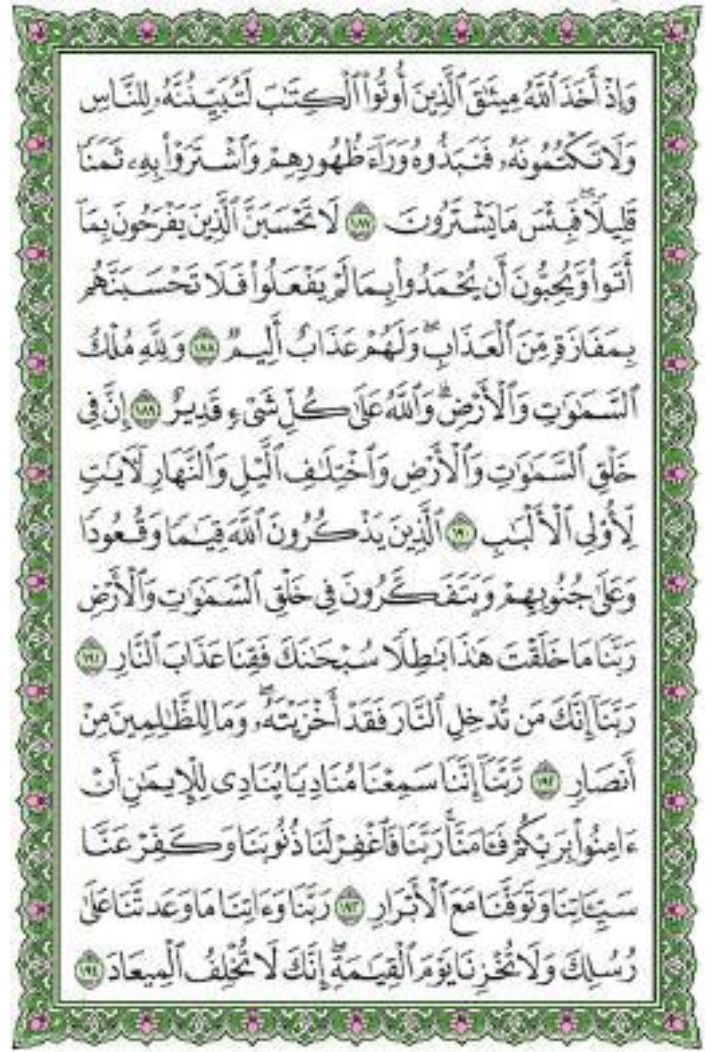 وَإِذْ أَخَذَ ٱللَّهُ مِيثَٰقَ ٱلَّذِينَ أُوتُوا۟ ٱلْكِتَٰبَ لَتُبَيِّنُنَّهُۥ لِلنَّاسِ
وَلَا تَكْتُمُونَهُۥ فَنَبَذُوهُ وَرَآءَ ظُهُورِهِمْ وَٱشْتَرَوْا۟ بِهِۦ ثَمَنًا
قَلِيلًا ۖ فَبِئْسَ مَا يَشْتَرُونَ ١٨٧ لَا تَحْسَبَنَّ ٱلَّذِينَ يَفْرَحُونَ بِمَآ
أَتَوا۟ وَّيُحِبُّونَ أَن يُحْمَدُوا۟ بِمَا لَمْ يَفْعَلُوا۟ فَلَا تَحْسَبَنَّهُم
بِمَفَازَةٍ مِّنَ ٱلْعَذَابِ ۖ وَلَهُمْ عَذَابٌ أَلِيمٌ ١٨٨ وَلِلَّهِ مُلْكُ
ٱلسَّمَٰوَٰتِ وَٱلْأَرْضِ ۗ وَٱللَّهُ عَلَىٰ كُلِّ شَىْءٍ قَدِيرٌ ١٨٩ إِنَّ فِى
خَلْقِ ٱلسَّمَٰوَٰتِ وَٱلْأَرْضِ وَٱخْتِلَٰفِ ٱلَّيْلِ وَٱلنَّهَارِ لَـَٔايَٰتٍ
لِّأُو۟لِى ٱلْأَلْبَٰبِ ١٩٠ ٱلَّذِينَ يَذْكُرُونَ ٱللَّهَ قِيَٰمًا وَقُعُودًا
وَعَلَىٰ جُنُوبِهِمْ وَيَتَفَكَّرُونَ فِى خَلْقِ ٱلسَّمَٰوَٰتِ وَٱلْأَرْضِ
رَبَّنَا مَا خَلَقْتَ هَٰذَا بَٰطِلًا سُبْحَٰنَكَ فَقِنَا عَذَابَ ٱلنَّارِ ١٩١
رَبَّنَآ إِنَّكَ مَن تُدْخِلِ ٱلنَّارَ فَقَدْ أَخْزَيْتَهُۥ ۖ وَمَا لِلظَّٰلِمِينَ مِنْ
أَنصَارٍ ١٩٢ رَّبَّنَآ إِنَّنَا سَمِعْنَا مُنَادِيًا يُنَادِى لِلْإِيمَٰنِ أَنْ
ءَامِنُوا۟ بِرَبِّكُمْ فَـَٔامَنَّا ۚ رَبَّنَا فَٱغْفِرْ لَنَا ذُنُوبَنَا وَكَفِّرْ عَنَّا
سَيِّـَٔاتِنَا وَتَوَفَّنَا مَعَ ٱلْأَبْرَارِ ١٩٣ رَبَّنَا وَءَاتِنَا مَا وَعَدتَّنَا عَلَىٰ
رُسُلِكَ وَلَا تُخْزِنَا يَوْمَ ٱلْقِيَٰمَةِ ۗ إِنَّكَ لَا تُخْلِفُ ٱلْمِيعَادَ ١٩٤